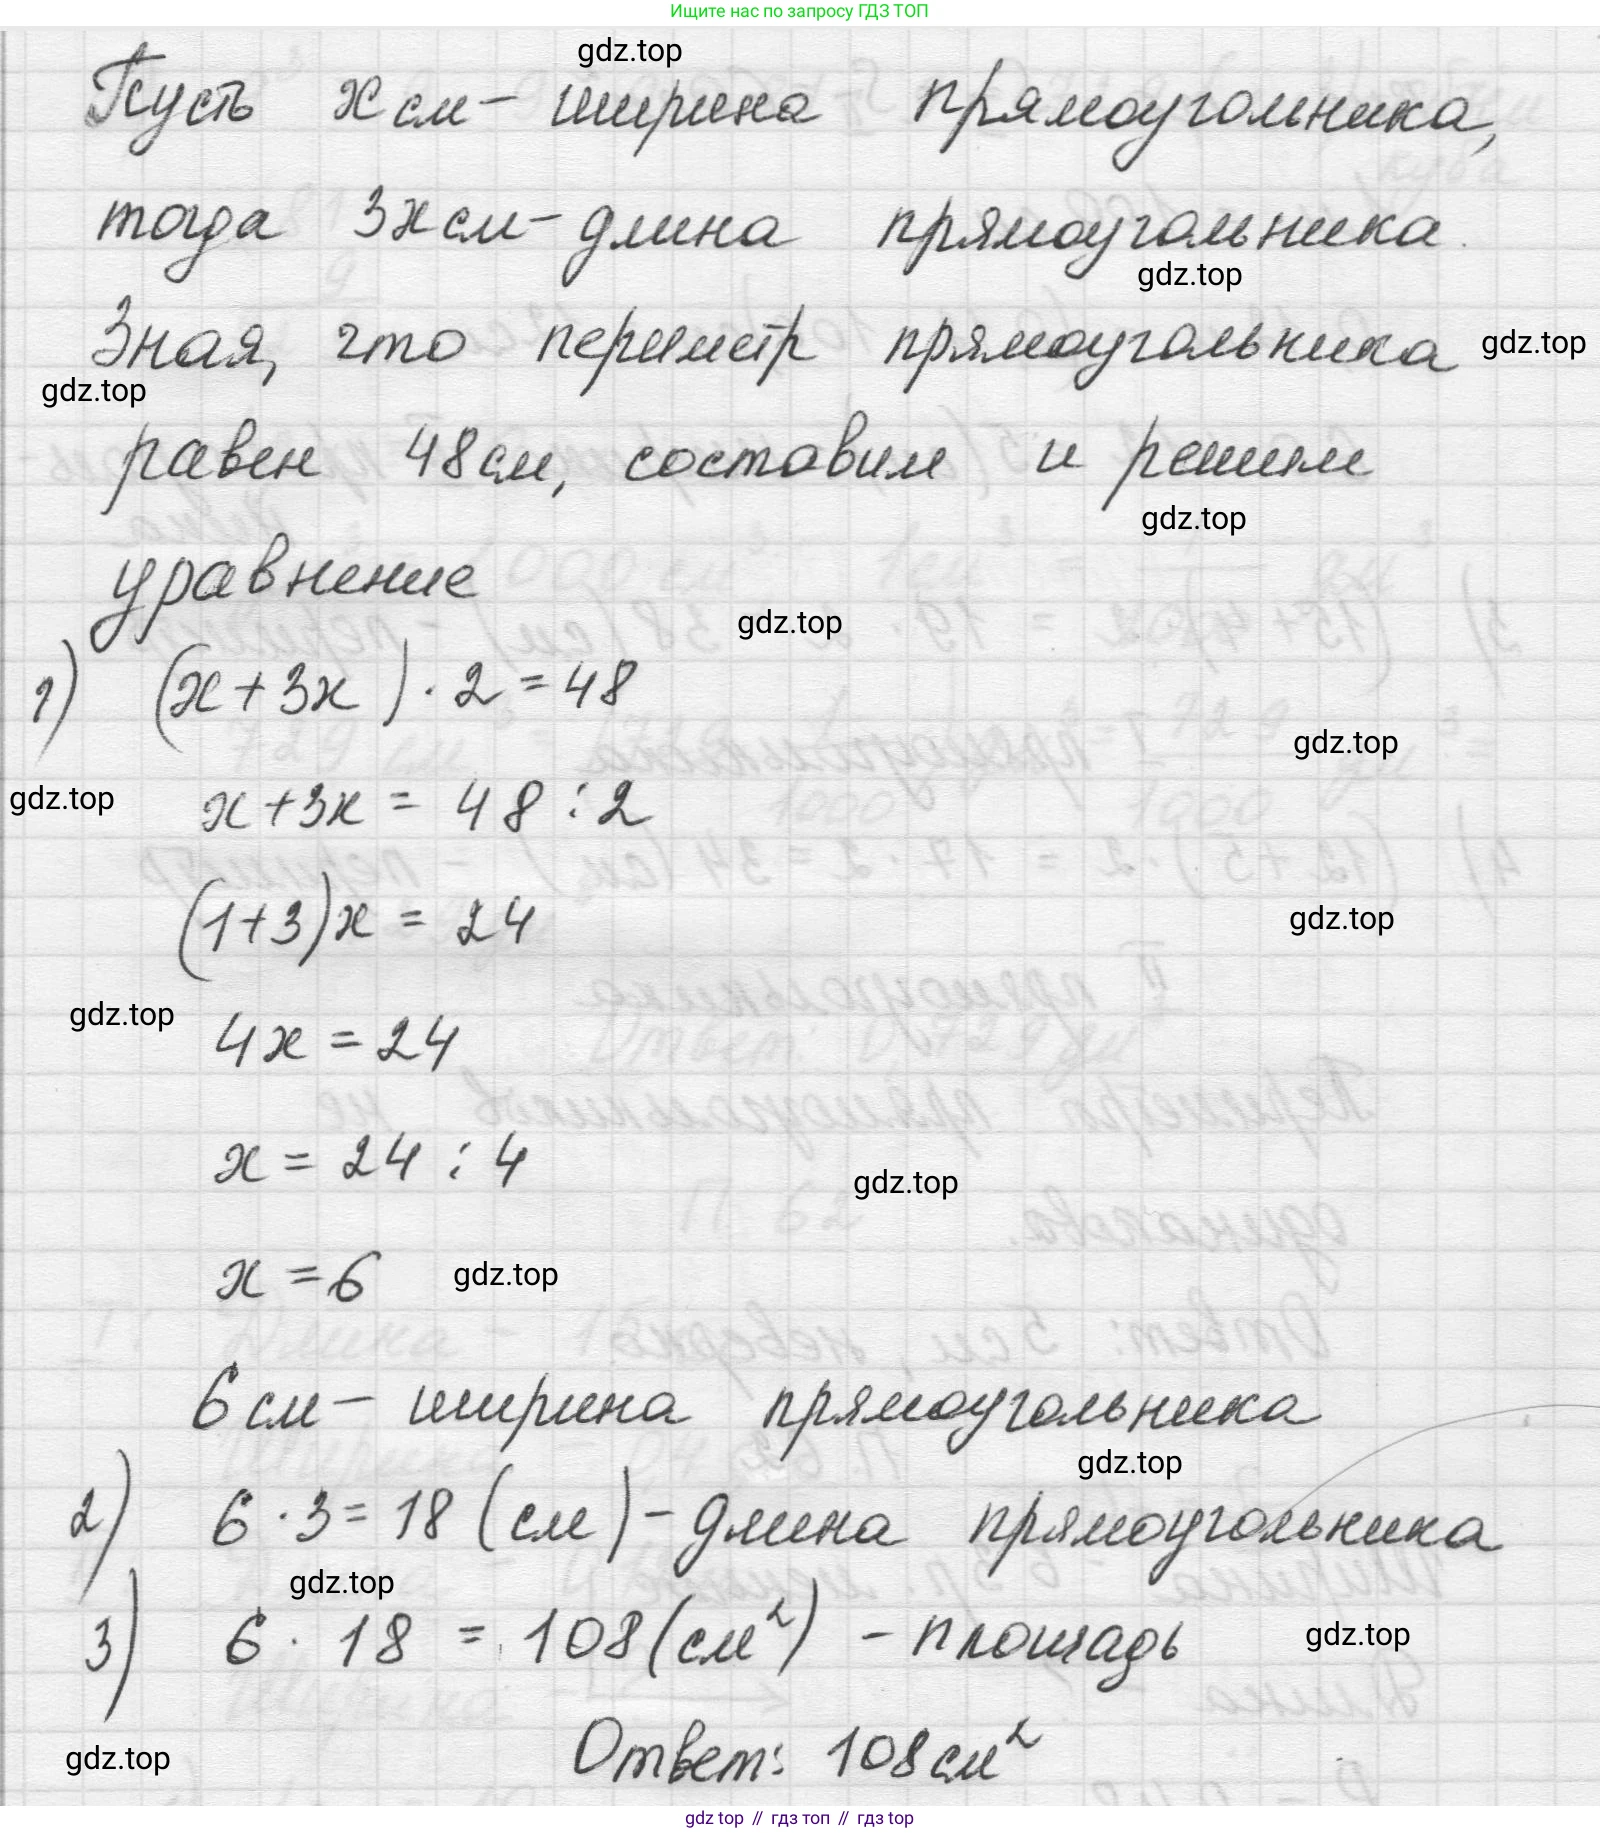 Ищите нас по запросу ГДЗ ТОП
gdz.top
Пусть x см – ширина прямоугольника,
тогда 3x см – длина прямоугольника.
gdz.top
Зная, что периметр прямоугольника
gdz.top
gdz.top
равен 48 см, составим и решим
gdz.top
уравнение
gdz.top
1) (x + 3x) · 2 = 48
gdz.top
gdz.top
x + 3x = 48 : 2
(1 + 3)x = 24
gdz.top
gdz.top
4x = 24
x = 24 : 4
gdz.top
x = 6
gdz.top
6 см – ширина прямоугольника
gdz.top
2) 6 · 3 = 18 (см) – длина прямоугольника
gdz.top
3) 6 · 18 = 108 (см²) – площадь
gdz.top
Ответ: 108 см²
gdz.top
gdz top // гдз топ // gdz top